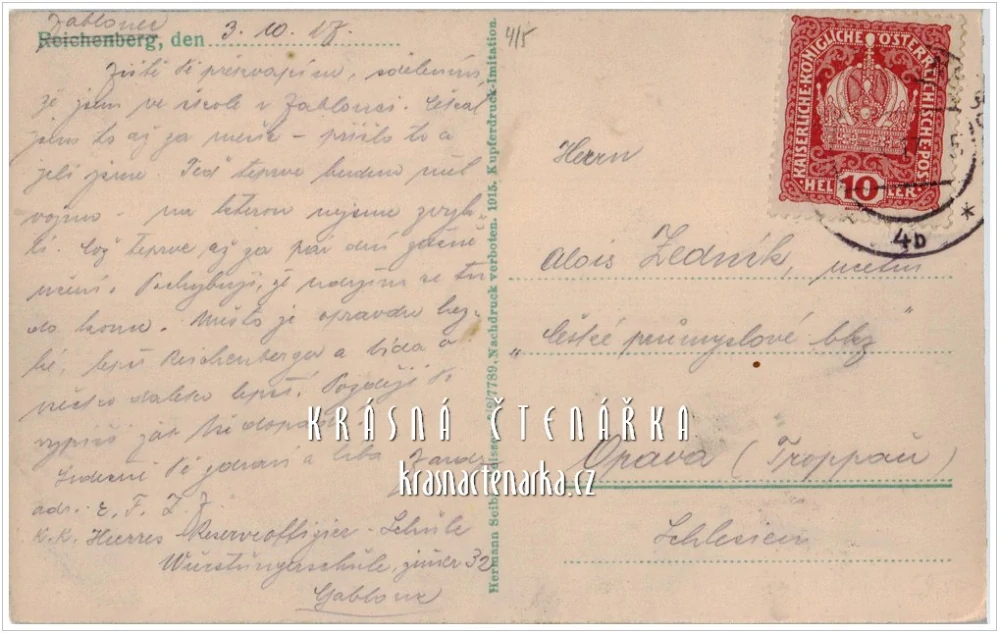 Jablonec
Reichenberg, den 3. 10. 17.
Jistě tě překvapím, sdělením
že jsem ve škole v Jablonci. Čekal
jsem to až za měsíc – přišlo to a
jeli jsme. Teď teprve budem míti
vojnu – na kterou nejsme zvyk
lí. Což teprve až za pár dní začne
učení. Pochybuji, že udržím se tu
do konce. Město je opravdu hez-
ké, lepší Reichenbergu a
všecko daleko lepší. Později ti
vypíši jak
Srdečně tě zdraví a líbá
adr. E. F.
K. K. Heeres Reserveoffizier-Schule
32
Gablonz
4/5
Hermann Seibt, Meissen. 7789. Nachdruck verboten. 1915. Kupferdruck-Imitation.
KAISERLICHE KÖNIGLICHE ÖSTERREICHISCHE POST
HELLER
10
4b
*
Herrn
Alois Zedník,
"České průmyslové
Opava (Troppau)
Schlesien
KRÁSNÁ ČTENÁŘKA
krasnactenarka.cz